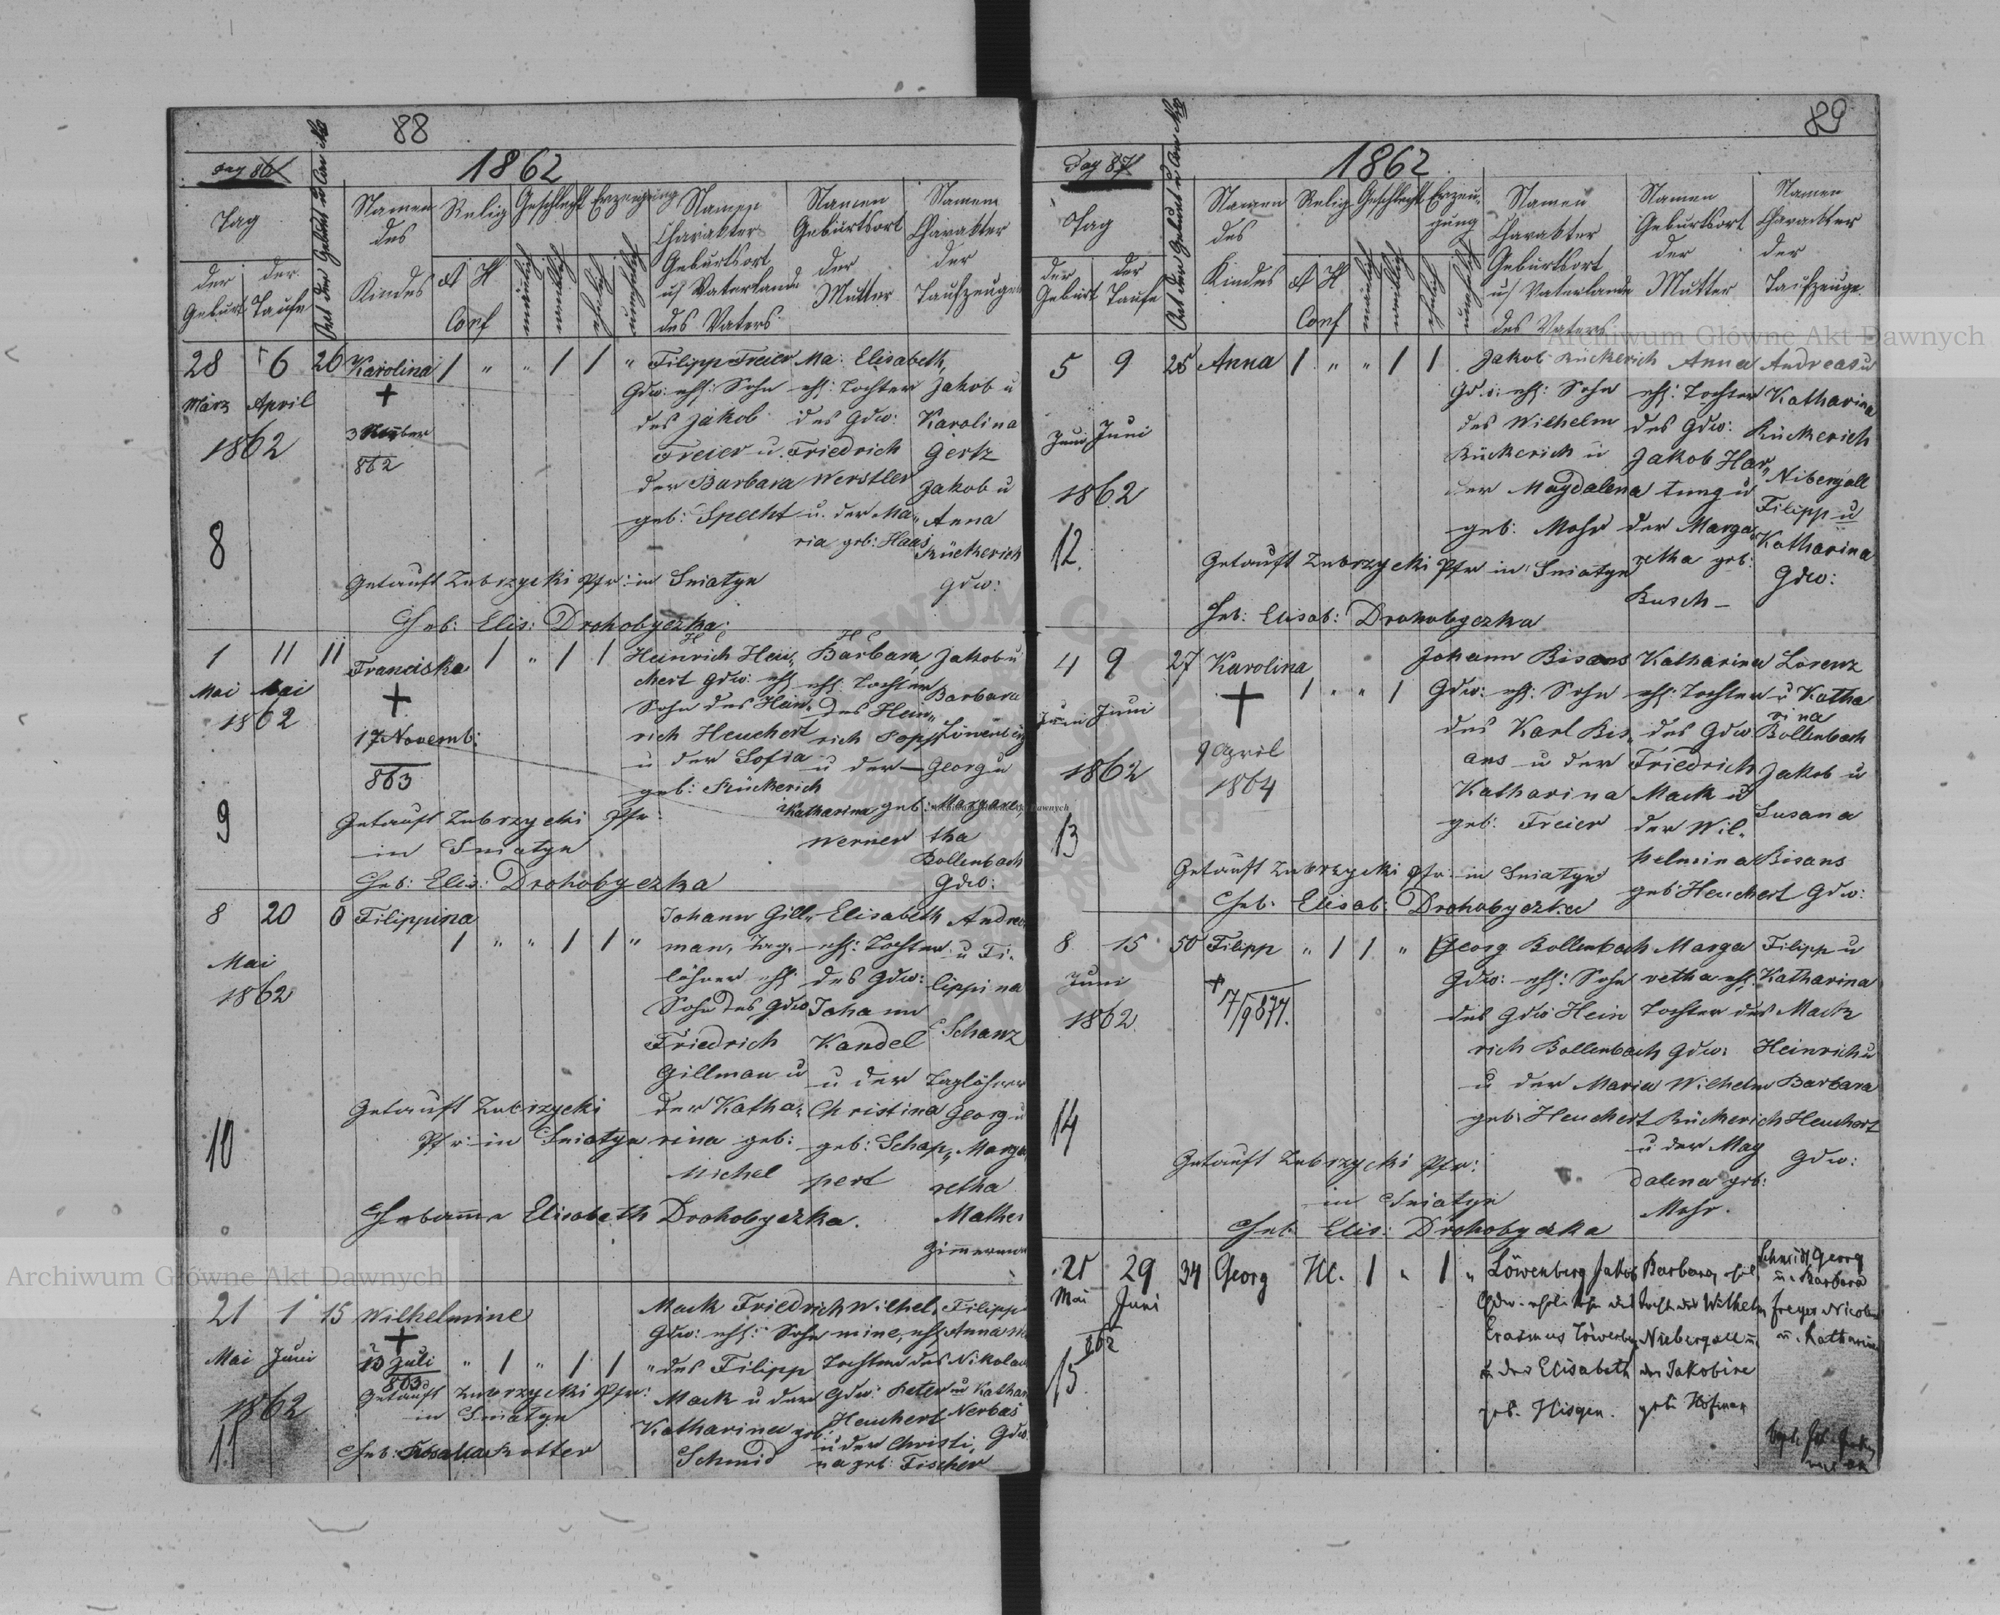 88
pag 86
1862
Tag
der Geburt
der Taufe
Ort der Geburt u Con No
Namen des Kindes
Relig
A H
Conf
Geschlecht
männlich
weiblich
Erzeugung
ehelich
unehelich
Namen
Charakter
Geburtsort
u/ Vaterland
des Vaters
Namen
Geburtsort
der
Mutter
Namen
Charakter
der
Taufzeugen
28 6 26 Karolina / " " / / "
März April
1862
3
862
8
Filipp Freier
Gdw: ehl: Sohn
des Jakob
Freier u.
der Barbara
geb: Specht
Ma: Elisabeth,
ehl: Tochter
des Gdw:
Friedrich
Werstler
u. der Ma„
ria geb: Haas
Jakob u
Karolina
Gertz
Jakob u
Anna
Rückerich
Gdw:
Getauft Zubrzycki Pfr: in Sniatyn
Heb: Elis: Drohobyczka:
1 11 11 Franciska / " / /
Mai Mai
1862
17 Novemb:
863
9
H C
Heinrich Heu„
chert Gdw: ehl
Sohn des Hein„
rich Heuchert
u der Sofia
geb: Rückerich
H C
Barbara
ehl: Tochter
des Hein„
rich Popp
u der —
Katharina geb:
Werner
Jakob u
Barbara
Löwenberg
Georg u
Margare„
tha
Bollenbach
Gdw:
Getauft Zubrzycki Pfr:
in Sniatyn
Heb: Elis: Drohobyczka
8 20 0 Filippina / " " / / "
Mai
1862
10
Johann Gill„
man, Tag„
löhner ehl:
Sohn des Gdw
Friedrich
Gillman u
der Katha„
rina geb:
Michel
Elisabeth
ehl: Tochter
des Gdw:
Johann
Kandel
u der
Christina
geb: Schap„
pert
Andreas
u Fi„
lippina
Schanz
Taglöhner
Georg u
Marga
retha
Mather
Zimmerman
Getauft Zubrzycki
Pfr: in Sniatyn
Hebamme Elisabeth Drohobyczka.
21 1 15 Wilhelmine
Mai Juni
10 Juli
863
" / " / / "
1862
11
Mack Friedrich
Gdw: ehl: Sohn
des Filipp
Mack u der
Katharina geb:
Schmid
Wilhel„
mine, ehl
Tochter des
Gdw: Peter
Heuchert
u der Christi„
na geb: Fischer
Filipp
Anna
Nikolaus
u Kathar
Nerbas
Gdw
Getauft Zubrzycki Pfr:
in Sniatyn
Heb: Rotter
89
pag 87
1862
Tag
der Geburt
der Taufe
Ort der Geburt u Con No
Namen
des
Kindes
Relig
A H
Conf
Geschlecht
männlich
weiblich
Erzeu„
gung
ehelich
unehelich
Namen
Charakter
Geburtsort
u/ Vaterlande
des Vaters
Namen
Geburtsort
der
Mutter
Namen
Charakter
der
Taufzeuge
5 9 25 Anna / " " / /
Juni Juni
1862
12.
Jakob Rückerich
Gd:: ehl: Sohn
des Wilhelm
Rückerich u
der Magdalena
geb: Mohr
Anna
ehl: Tochter
des Gdw:
Jakob Har„
tung u
der Marga„
retha geb:
Busch —
Andreas u
Katharina
Rückerich
Nibergall
Filipp u
Katharina
Gdw:
Getauft Zubrzycki Pfr in Sniatyn
Heb: Elisab: Drohobyczka
4 9 27 Karolina / " " /
Juni Juni
1862
9 April
1864
13
Johann Bisans
Gdw: ehl: Sohn
des Karl Bis„
ans u der
Katharina
geb: Freier
Katharina
ehl: Tochter
des Gdw
Friedrich
Mack u
der Wil„
helmina
geb Heuchert
Lorenz
u Katha
rina
Bollenbach
Jakob u
Susana
Bisans
Gdw:
Getauft Zubrzycki Pfr: in Sniatyn
Heb: Elisab: Drohobyczka
8 15 50 Filipp " / / "
Juni
1862.
17/9 877.
14
Georg Bollenbach
Gdw: ehl: Sohn
des Gdw Hein
rich Bollenbach
u der Maria
geb: Heuchert
Marga
retha ehl:
Tochter des
Gdw:
Wilhelm
Rückerich
u der Mag
dalena geb:
Mohr.
Filipp u
Katharina
Mack
Heinrich u
Barbara
Heuchert
Gdw:
Getauft Zubrzycki Pfr:
in Sniatyn
Heb: Elis: Drohobyczka
25 29 34 Georg H.C. / " / "
Mai Juni
862
15.
Löwenberg Jakob
Gdw. ehel. Sohn des
Erasmus Löwenberg
u der Elisabeth
geb. Hisgen.
Barbara, ehl
Tocht. des Wilhelm
Niebergall u.
der Jakobine
geb: Hofman
Schmidt Georg
u. Barbara
Freyer Nicolaus
u. Katharina
Archiwum Główne Akt Dawnych
Archiwum Główne Akt Dawnych
Archiwum Główne Akt Dawnych